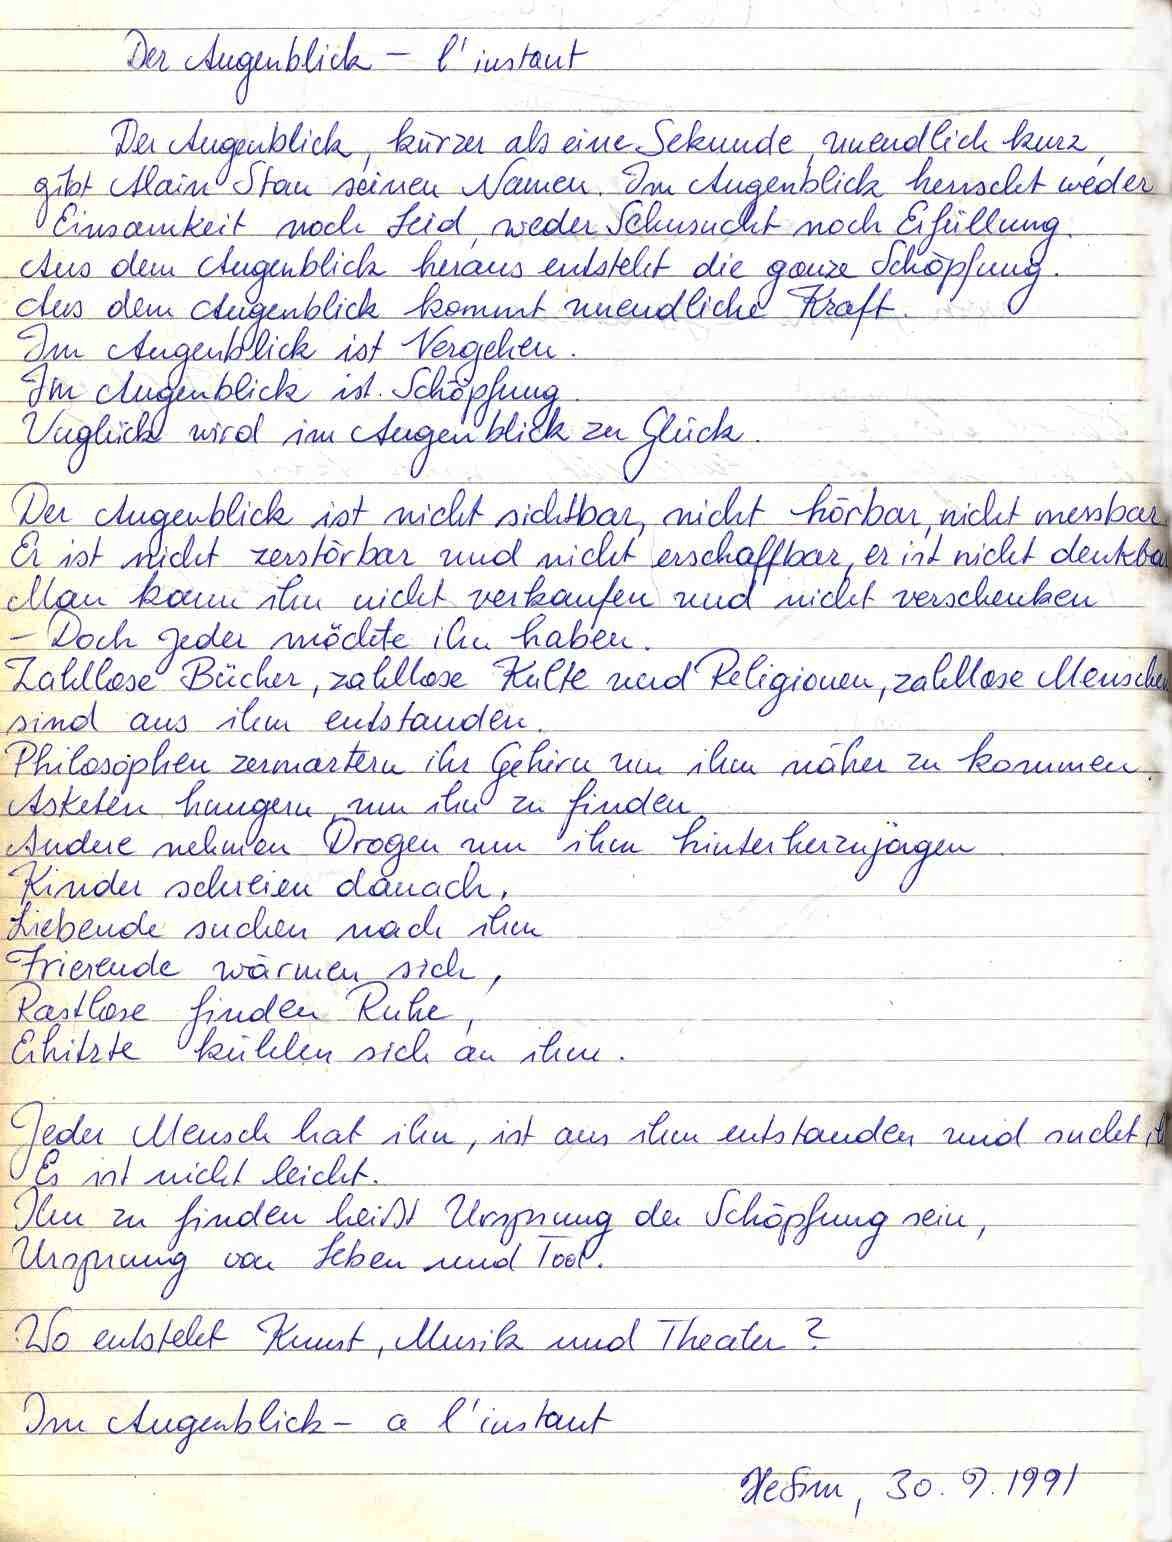 Der Augenblick – l'instant
Der Augenblick, kürzer als eine Sekunde, unendlich kurz,
gibt Alain Stau seinen Namen. Im Augenblick herrscht weder
Einsamkeit noch Leid, weder Sehnsucht noch Erfüllung.
Aus dem Augenblick heraus entsteht die ganze Schöpfung.
Aus dem Augenblick kommt unendliche Kraft.
Im Augenblick ist Vergehen.
Im Augenblick ist Schöpfung.
Unglück wird im Augenblick zu Glück.
Der Augenblick ist nicht sichtbar, nicht hörbar, nicht messbar
Er ist nicht zerstörbar und nicht erschaffbar, er ist nicht denkbar
Man kann ihn nicht verkaufen und nicht verschenken
– Doch jeder möchte ihn haben.
Zahllose Bücher, zahllose Kulte und Religionen, zahllose Menschen
sind aus ihm entstanden.
Philosophen zermartern ihr Gehirn um ihm näher zu kommen.
Asketen hungern um ihn zu finden
Andere nehmen Drogen um ihm hinterherzujagen.
Kinder schreien danach,
Liebende suchen nach ihm
Frierende wärmen sich,
Rastlose finden Ruhe,
Erhitzte kühlen sich an ihm.
Jeder Mensch hat ihn, ist aus ihm entstanden und sucht
Es ist nicht leicht.
Ihn zu finden heißt Ursprung der Schöpfung sein,
Ursprung von Leben und Tod.
Wo entsteht Kunst, Musik und Theater?
Im Augenblick – a l'instant
30.9.1991